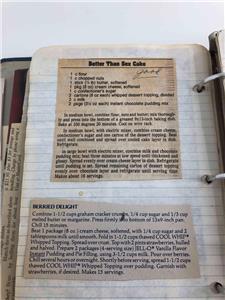 Better Than Sex Cake
1 c flour
1 c chopped nuts
1 stick (½ lb) butter, softened
1 pkg (8 oz) cream cheese, softened
1 c confectioner's sugar
2 cartons (8 oz each) whipped dessert topping, divided
3 c milk
2 pkgs (3¾ oz each) instant chocolate pudding mix
In medium bowl, combine flour, nuts and butter; mix thorough-
ly and press into the bottom of a greased 9x13-inch baking dish.
Bake at 350 degrees 20 minutes. Cool on wire rack.
In medium bowl, with electric mixer, combine cream cheese,
confectioner's sugar and one carton of the dessert topping. Beat
until well combined and spread over cooled cake layer in dish.
Refrigerate.
In large bowl with electric mixer, combine milk and chocolate
pudding mix; beat three minutes at low speed until thickened and
glossy. Spread evenly over cream cheese layer in dish. Refrigerate
until pudding is set. Spread remaining carton of dessert topping
evenly over chocolate layer and refrigerate until serving time.
Makes about 15 servings.
BERRIED DELIGHT
Combine 1-1/2 cups graham cracker crumbs, 1/4 cup sugar and 1/3 cup
melted butter or margarine. Press firmly into bottom of 13x9-inch pan.
Chill 15 minutes.
Beat 1 package (8 oz.) cream cheese, softened, with 1/4 cup sugar and 2
tablespoons milk until smooth. Fold in 1-1/2 cups thawed COOL WHIP®
Whipped Topping. Spread over crust. Top with 2 pints strawberries, hulled
and halved. Prepare 2 packages (4-serving size) JELL-O® Vanilla Flavor
Instant Pudding and Pie Filling, using 3-1/2 cups milk. Pour over berries.
Chill several hours or overnight. Shortly before serving, spread 1-1/2 cups
thawed COOL WHIP® Whipped Topping over pudding. Garnish with
strawberries, if desired. Makes 15 servings.